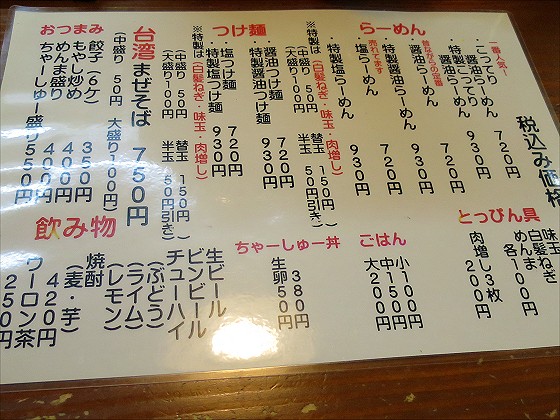 税込み価格
らーめん
一番人気！
・こってり醤油らーめん 720円
・特製こってり醤油らーめん 930円
昔ながらの定番
・醤油らーめん 720円
・特製醤油らーめん 930円
売れてます
・塩らーめん 720円
・特製塩らーめん 930円
※特製は（白髪ねぎ・味玉・肉増し）
（中盛り 50円 替玉 150円
大盛り 100円 半玉 50円引き）
つけ麺
・醤油つけ麺 720円
・特製醤油つけ麺 930円
・塩つけ麺 720円
・特製塩つけ麺 930円
※特製は（白髪ねぎ・味玉・肉増し）
（中盛り 50円 替玉 150円
大盛り 100円 半玉 50円引き）
台湾まぜそば 750円
（中盛り 50円 大盛り 100円）
おつまみ
餃子（6ケ） 350円
もやし炒め 400円
めんま盛り 400円
ちゃーしゅー盛り 550円
とっぴん具
味玉
白髪ねぎ
めんま 各100円
肉増し3枚 200円
ごはん
小 100円
中 150円
大 200円
ちゃーしゅー丼
380円
生卵 50円
飲み物
生ビール
ビンビール
チューハイ
（ぶどう）
（ライム）
（レモン）
焼酎
（麦・芋）
420円
ウーロン茶
250円